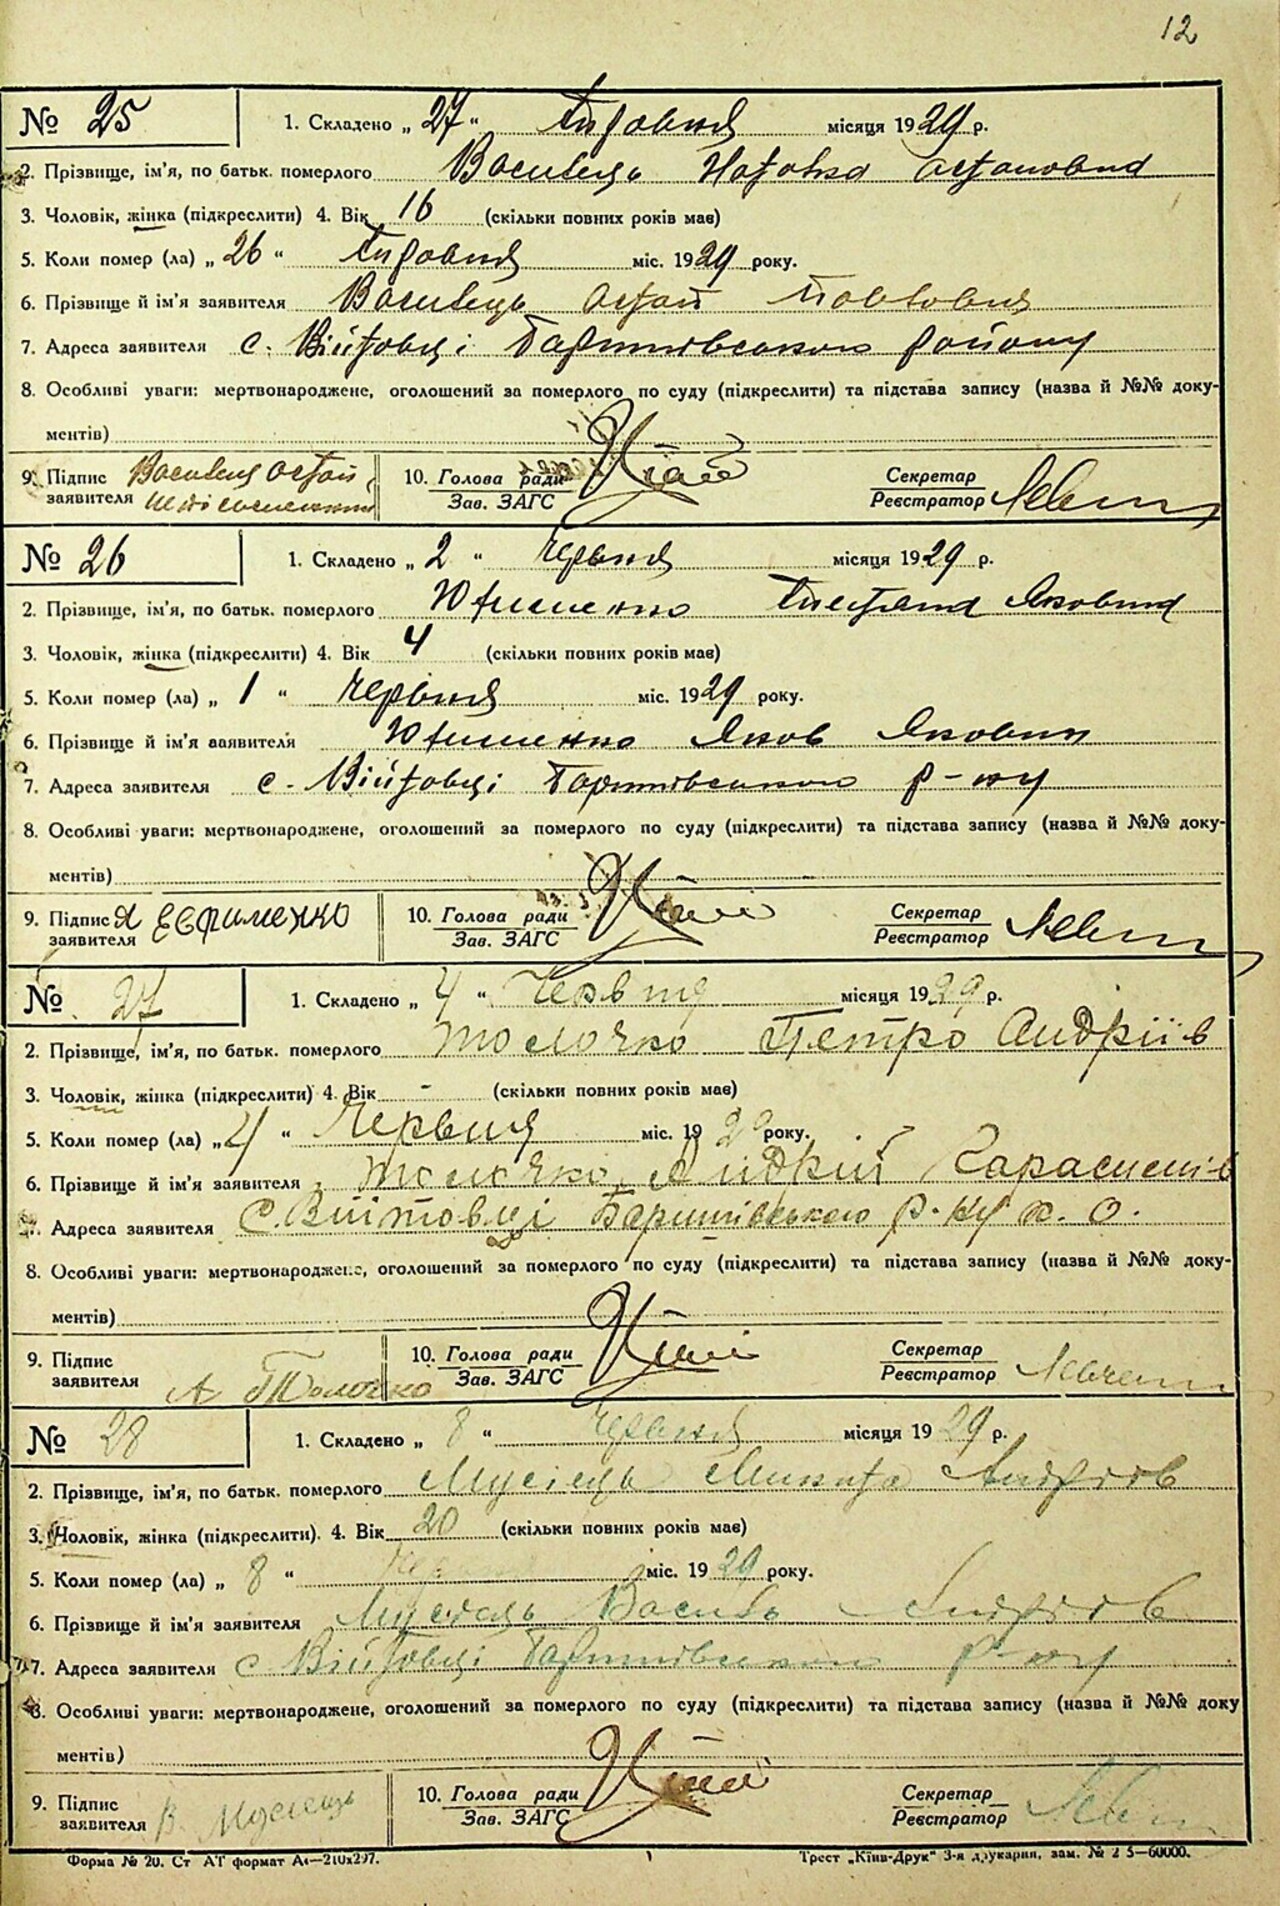 12
№ 25 1. Складено „ 27 “ Травня місяця 1929 р.
2. Прізвище, ім'я, по батьк. померлого Василець Наталка Остаповна
3. Чоловік, жінка (підкреслити) 4. Вік 16 (скільки повних років має)
5. Коли помер (ла) „ 26 “ Травня міс. 1929 року.
6. Прізвище й ім'я заявителя Василець Остап Павлович
7. Адреса заявителя с. Війтовці Баришівського району
8. Особливі уваги: мертвонароджене, оголошений за померлого по суду (підкреслити) та підстава запису (назва й №№ доку-
ментів)
9. Підпис заявителя Василець Остап
10. Голова ради Зав. ЗАГС
Секретар Реєстратор
№ 26 1. Складено „ 2 “ Червня місяця 1929 р.
2. Прізвище, ім'я, по батьк. померлого Юхименко Яковна
3. Чоловік, жінка (підкреслити) 4. Вік 4 (скільки повних років має)
5. Коли помер (ла) „ 1 “ Червня міс. 1929 року.
6. Прізвище й ім'я заявителя Юхименко Яков Якович
7. Адреса заявителя с. Війтовці Баришівського р-ну
8. Особливі уваги: мертвонароджене, оголошений за померлого по суду (підкреслити) та підстава запису (назва й №№ доку-
ментів)
9. Підпис заявителя Я Ефименко
10. Голова ради Зав. ЗАГС
Секретар Реєстратор
№ 27 1. Складено „ 4 “ Червня місяця 1929 р.
2. Прізвище, ім'я, по батьк. померлого Толочко Петро Андріїв
3. Чоловік, жінка (підкреслити) 4. Вік - (скільки повних років має)
5. Коли помер (ла) „ 4 “ Червня міс. 1929 року.
6. Прізвище й ім'я заявителя Толочко Андрій Гарасимів
7. Адреса заявителя с. Війтовці Баришівського р-ну К. О.
8. Особливі уваги: мертвонароджене, оголошений за померлого по суду (підкреслити) та підстава запису (назва й №№ доку-
ментів)
9. Підпис заявителя А Толочко
10. Голова ради Зав. ЗАГС
Секретар Реєстратор
№ 28 1. Складено „ 8 “ Червня місяця 1929 р.
2. Прізвище, ім'я, по батьк. померлого Мусієць Микита Андріїв
3. Чоловік, жінка (підкреслити). 4. Вік 20 (скільки повних років має)
5. Коли помер (ла) „ 8 “ Червня міс. 1929 року.
6. Прізвище й ім'я заявителя Мусієць Василь Андріїв
7. Адреса заявителя с Війтовці Баришівського р-ну
8. Особливі уваги: мертвонароджене, оголошений за померлого по суду (підкреслити) та підстава запису (назва й №№ доку
ментів)
9. Підпис заявителя В. Мусиець
10. Голова ради Зав. ЗАГС
Секретар Реєстратор
Форма № 20. Ст АТ формат А4—210x297. Трест „Київ-Друк“ 3-я друкарня, зам. № 2 5—60000.